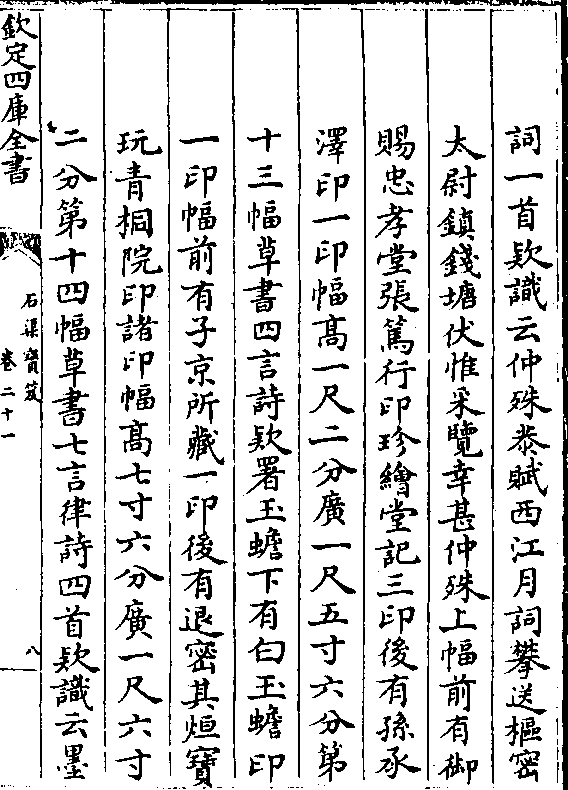 詞一首欵識云仲殊㳟賦西江月詞攀送樞密
太尉鎮錢塘伏惟采覽幸甚仲殊上幅前有御
賜忠孝堂張篤行印珍繪堂記三印後有孫承
澤印一印幅髙一尺二分廣一尺五寸六分第
十三幅草書四言詩欵署玉蟾下有白玉蟾印
一印幅前有子京所藏一印後有退密其烜寶
玩青桐院印諸印幅髙七寸六分廣一尺六寸
二分第十四幅草書七言律詩四首欵識云墨
欽定四庫全書
石渠寳笈
卷二十一
八